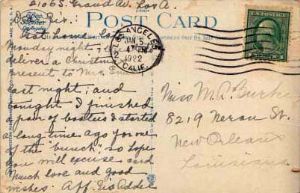 2106 S. Grand Av. Los A.
POST CARD
LOS ANGELES
JAN 5
4 PM
1922
CALIF.
Monday night, I
deliver a Christmas
present to Mrs.
last night, and
tonight I finished
a pair of booties I started
a long time ago. You are
of the "bunch", so hope
you will excuse and
Much love and good
wishes. Aff. Sis Addie
Miss M. A. Burke
8219 Neron St.
New Orleans
Louisiana